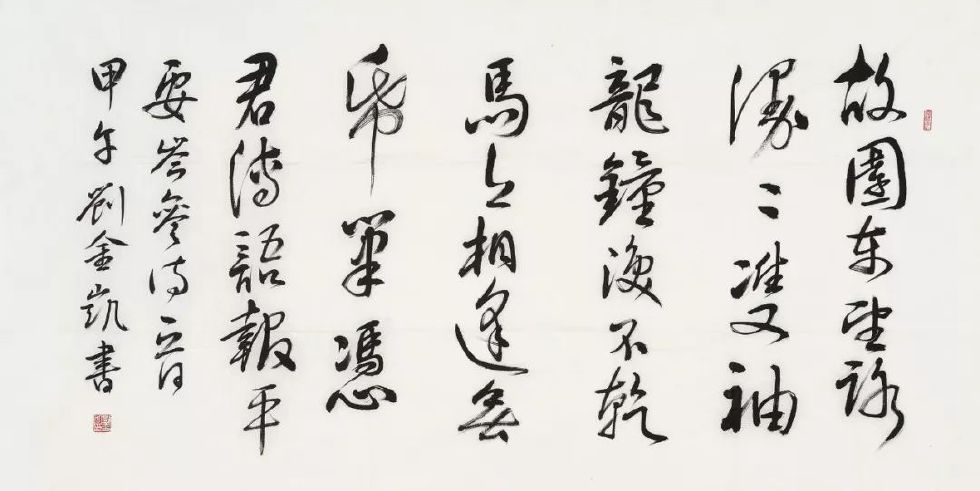 故園東望路
漫〻雙袖
龍鐘淚不乾
馬上相逢無
帋筆憑
君傳語報平
安岑參詩一首
甲午劉金凱書